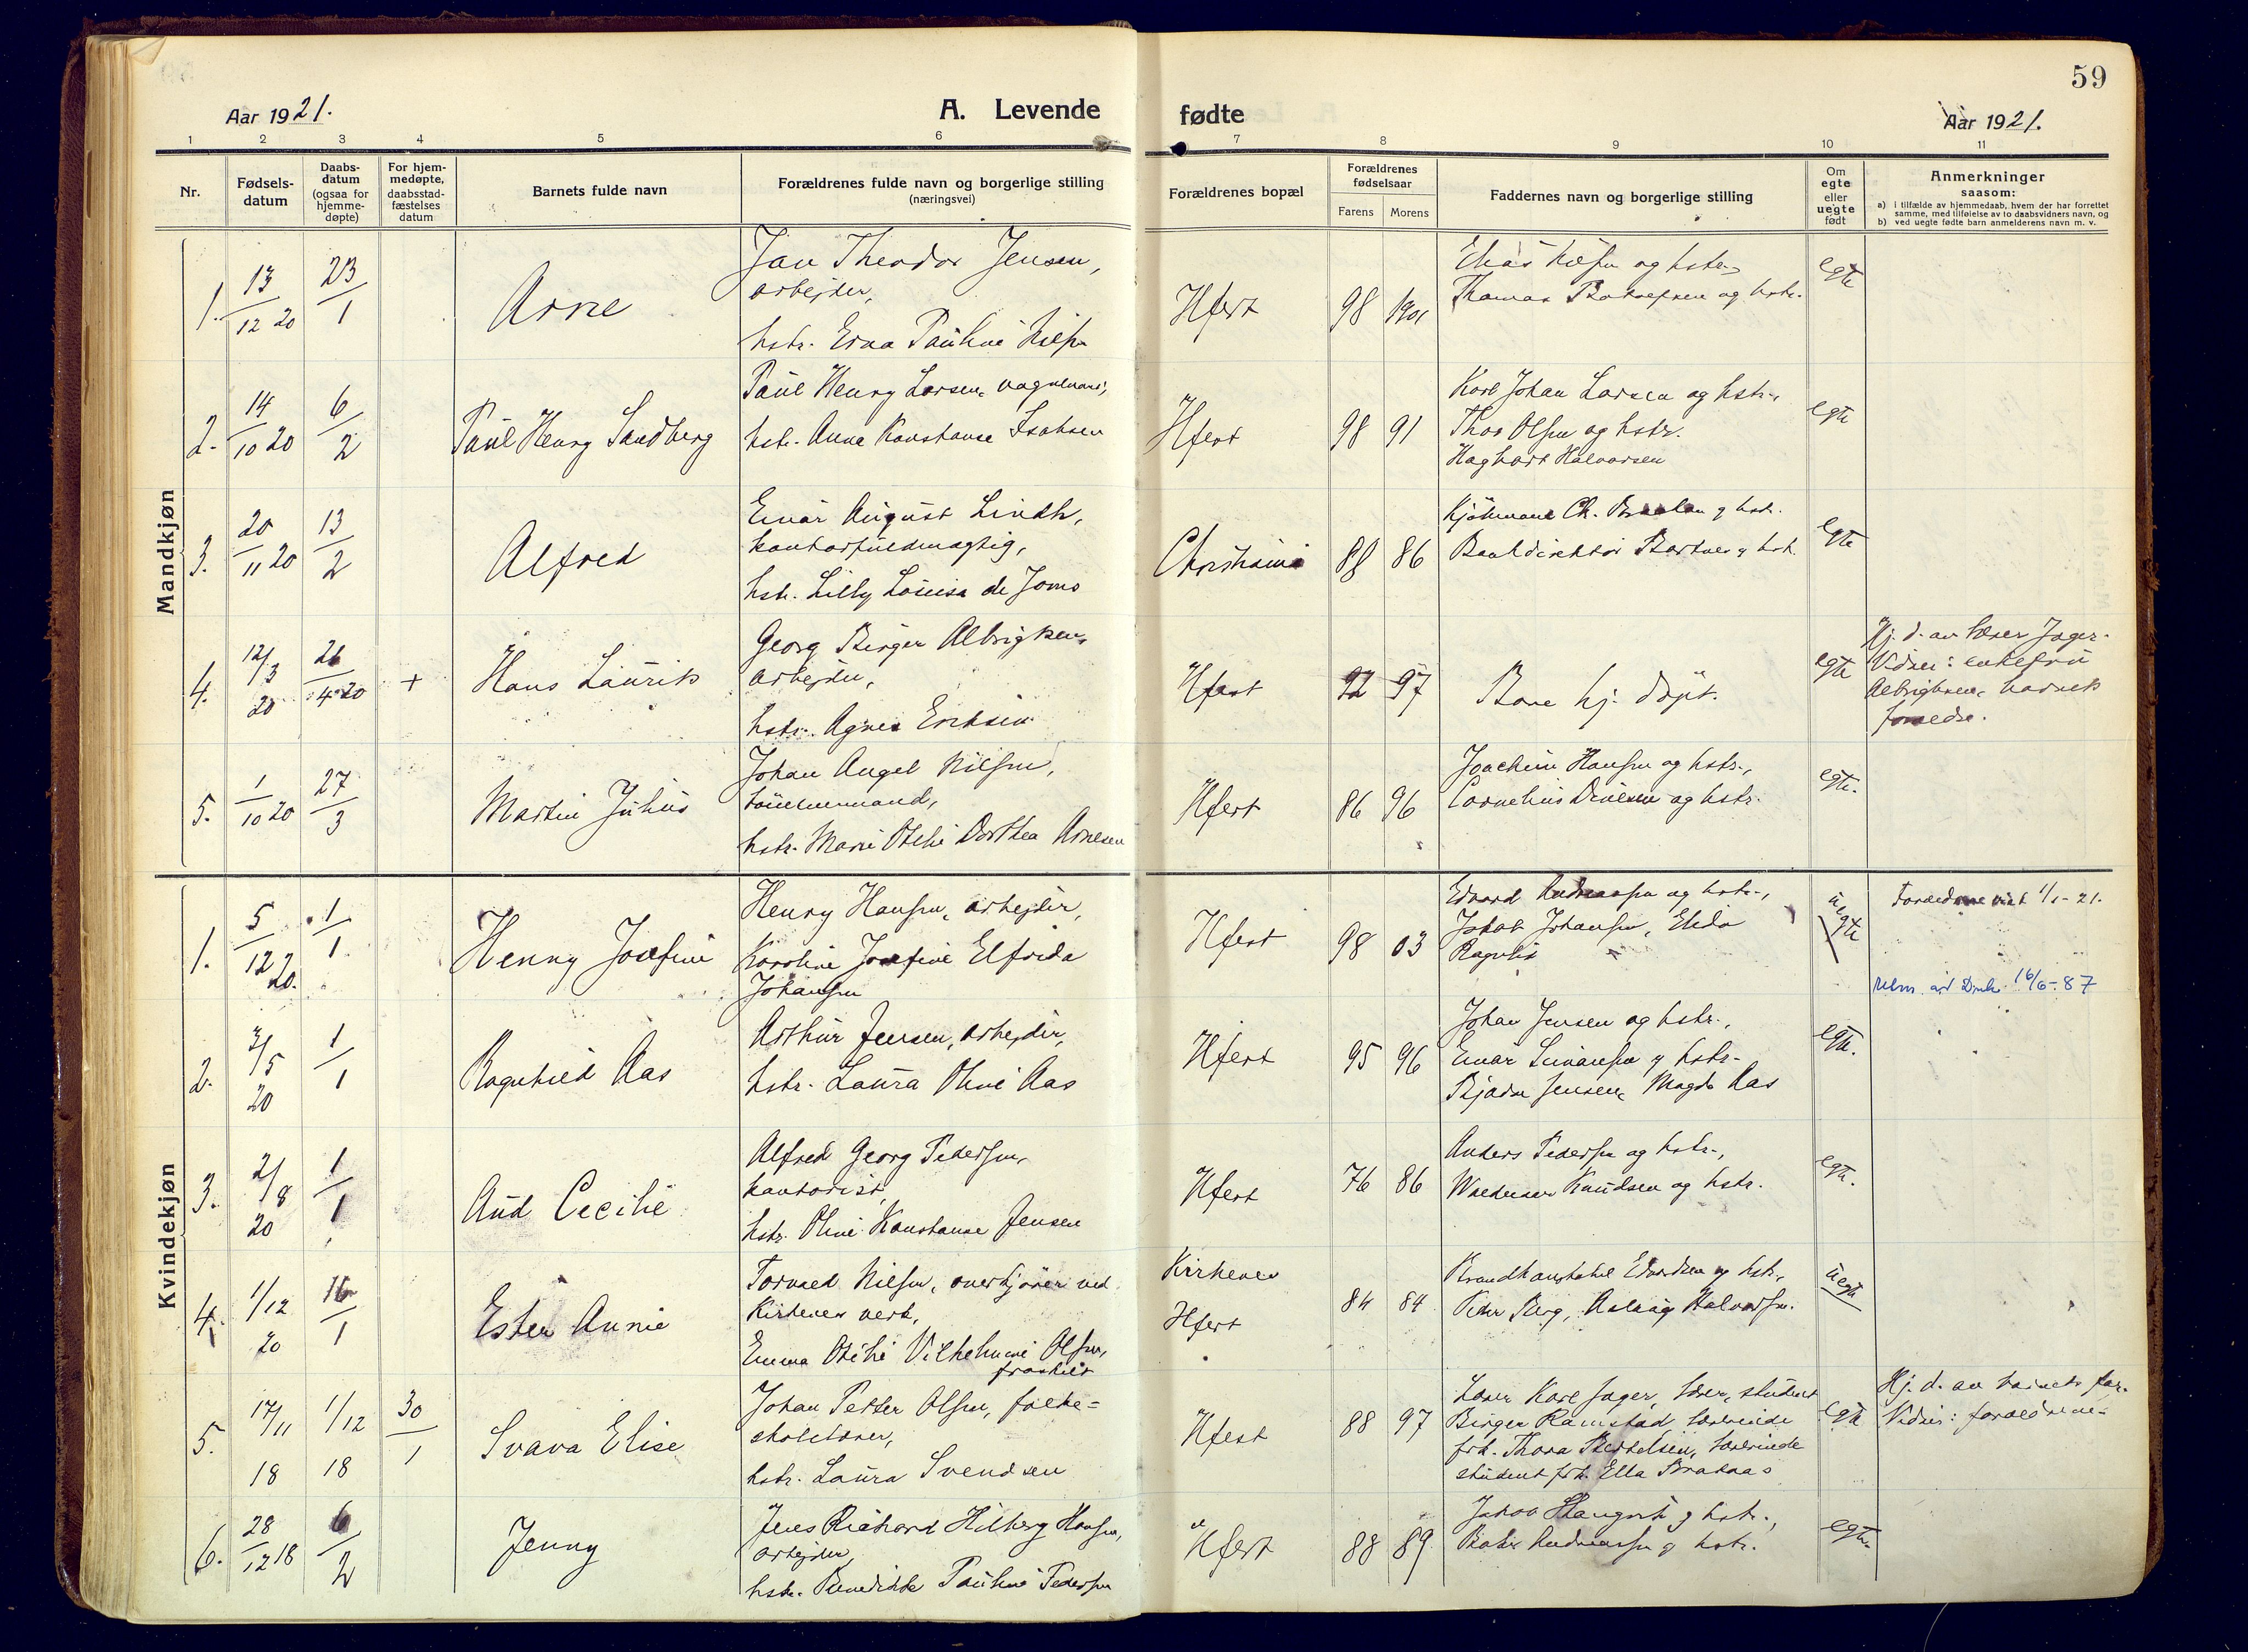 59
Aar 1921.
A. Levende fødte
Aar 1921.
1 2 3 4 5 6 7 8 9 10 11
Nr.
Fødsels-
datum
Daabs-
datum
(ogsaa for
hjemme-
døpte)
For hjem-
medøpte,
daabsstad-
fæstelses
datum
Barnets fulde navn
Forældrenes fulde navn og borgerlige stilling
(næringsvei)
Forældrenes bopæl
Forældrenes
fødselsaar
Farens
Morens
Faddernes navn og borgerlige stilling
Om
egte
eller
uegte
født
Anmerkninger
saasom:
a) i tilfælde av hjemmedaab, hvem der har forrettet
samme, med tilføielse av to daabsvidners navn, og
b) ved uegte fødte barn anmelderens navn m. v.
Mandkjøn
1. 13/12 20 23/1
Arne
Jan Theodor Jensen,
arbejder,
hstr. Erna Pauline Nilsen
Hfest 98 1901
og hstr.
Thomas og hstr.
egte
2. 14/10 20 6/2
Paul Henry Sandberg
Paul Henry Larsen,
hstr. Anna Konstanse Isaksen
Hfest 98 91
Karl Johan Larsen og hstr.,
Thor Olsen og hstr.
Hagbart Halvorsen
egte
3. 20/11 20 13/2
Alfred
Einar August Lindh,
kontorfuldmægtig,
hstr. Lilly Louisa de Joms
Christiania 88 86
Kjøbmand Ch. og hstr.
Bankdirektør og hstr.
egte
4. 12/3 20 26/4 20 +
Hans Laurits
Georg Birger Albrigtsen,
arbejder,
hstr. Agnes Eriksen
Hfest 92 97
Bare hj. døpt.
egte
Hj. d. av lærer Jager.
Vidner: enkefru
Albrigtsen, barnets
forældre.
5. 1/10 20 27/3
Martin Julius
Johan Angel Nilsen,
tømmermand,
hstr. Marie Otelie Dorthea Arnesen
Hfest 86 96
Joachim Hansen og hstr.,
Cornelius og hstr.
egte.
Kvindekjøn
1. 5/12 20. 1/1.
Henny Josefine
Henry Hansen, arbejder,
Karoline Josefine Elfrida
Johansen
Hfest 98 03
Edvard Andreassen og hstr.,
Jakob Johansen, Elida
uegte
Forældrene viet 1/1-21.
16/6-87
2. 2/5 20 1/1
Ragnhild Aas
Arthur Jensen, arbejder,
hstr. Laura Oline Aas
Hfest 95 96
Johan Jensen og hstr.,
Einar og hstr.
Jensen, Magda Aas
egte.
3. 2/8 20 1/1
Aud Cecilie
Alfred Georg Pedersen,
kontorist,
hstr. Oline Konstanse Jensen
Hfest 76 86
Anders Pedersen og hstr.,
Waldemar Knudsen og hstr.
egte.
4. 1/12 20 16/1
Ester Annie
Torvald Nilsen, ved
Kirkenes verk,
Emma Otelie Vilhelmine Olsen,
fraskilt
Kirkenes
Hfest
84 84
Brandkonstabel Edvardsen og hstr.,
Peder Berg, Aslaug Halvorsen.
uegte
5. 17/11 18 1/12 18 30/1
Svava Elise
Johan Petter Olsen, folke-
skolelærer,
hstr. Laura Svendsen
Hfest 88 97
Lærer Karl Jager, lærer, student
Birger Ramstad, lærerinde
frk. Thora Bertelsen, lærerinde
student frk. Ella Brataas
egte
Hj. d. av barnets far.
Vidner: forældrene.
6. 28/12 18 6/2
Jenny
Jens Richard Hilberg Hansen,
arbejder,
hstr. Benedikte Pauline Pedersen
Hfest 88 89
Jakob og hstr.,
Andreassen og hstr.
egte.